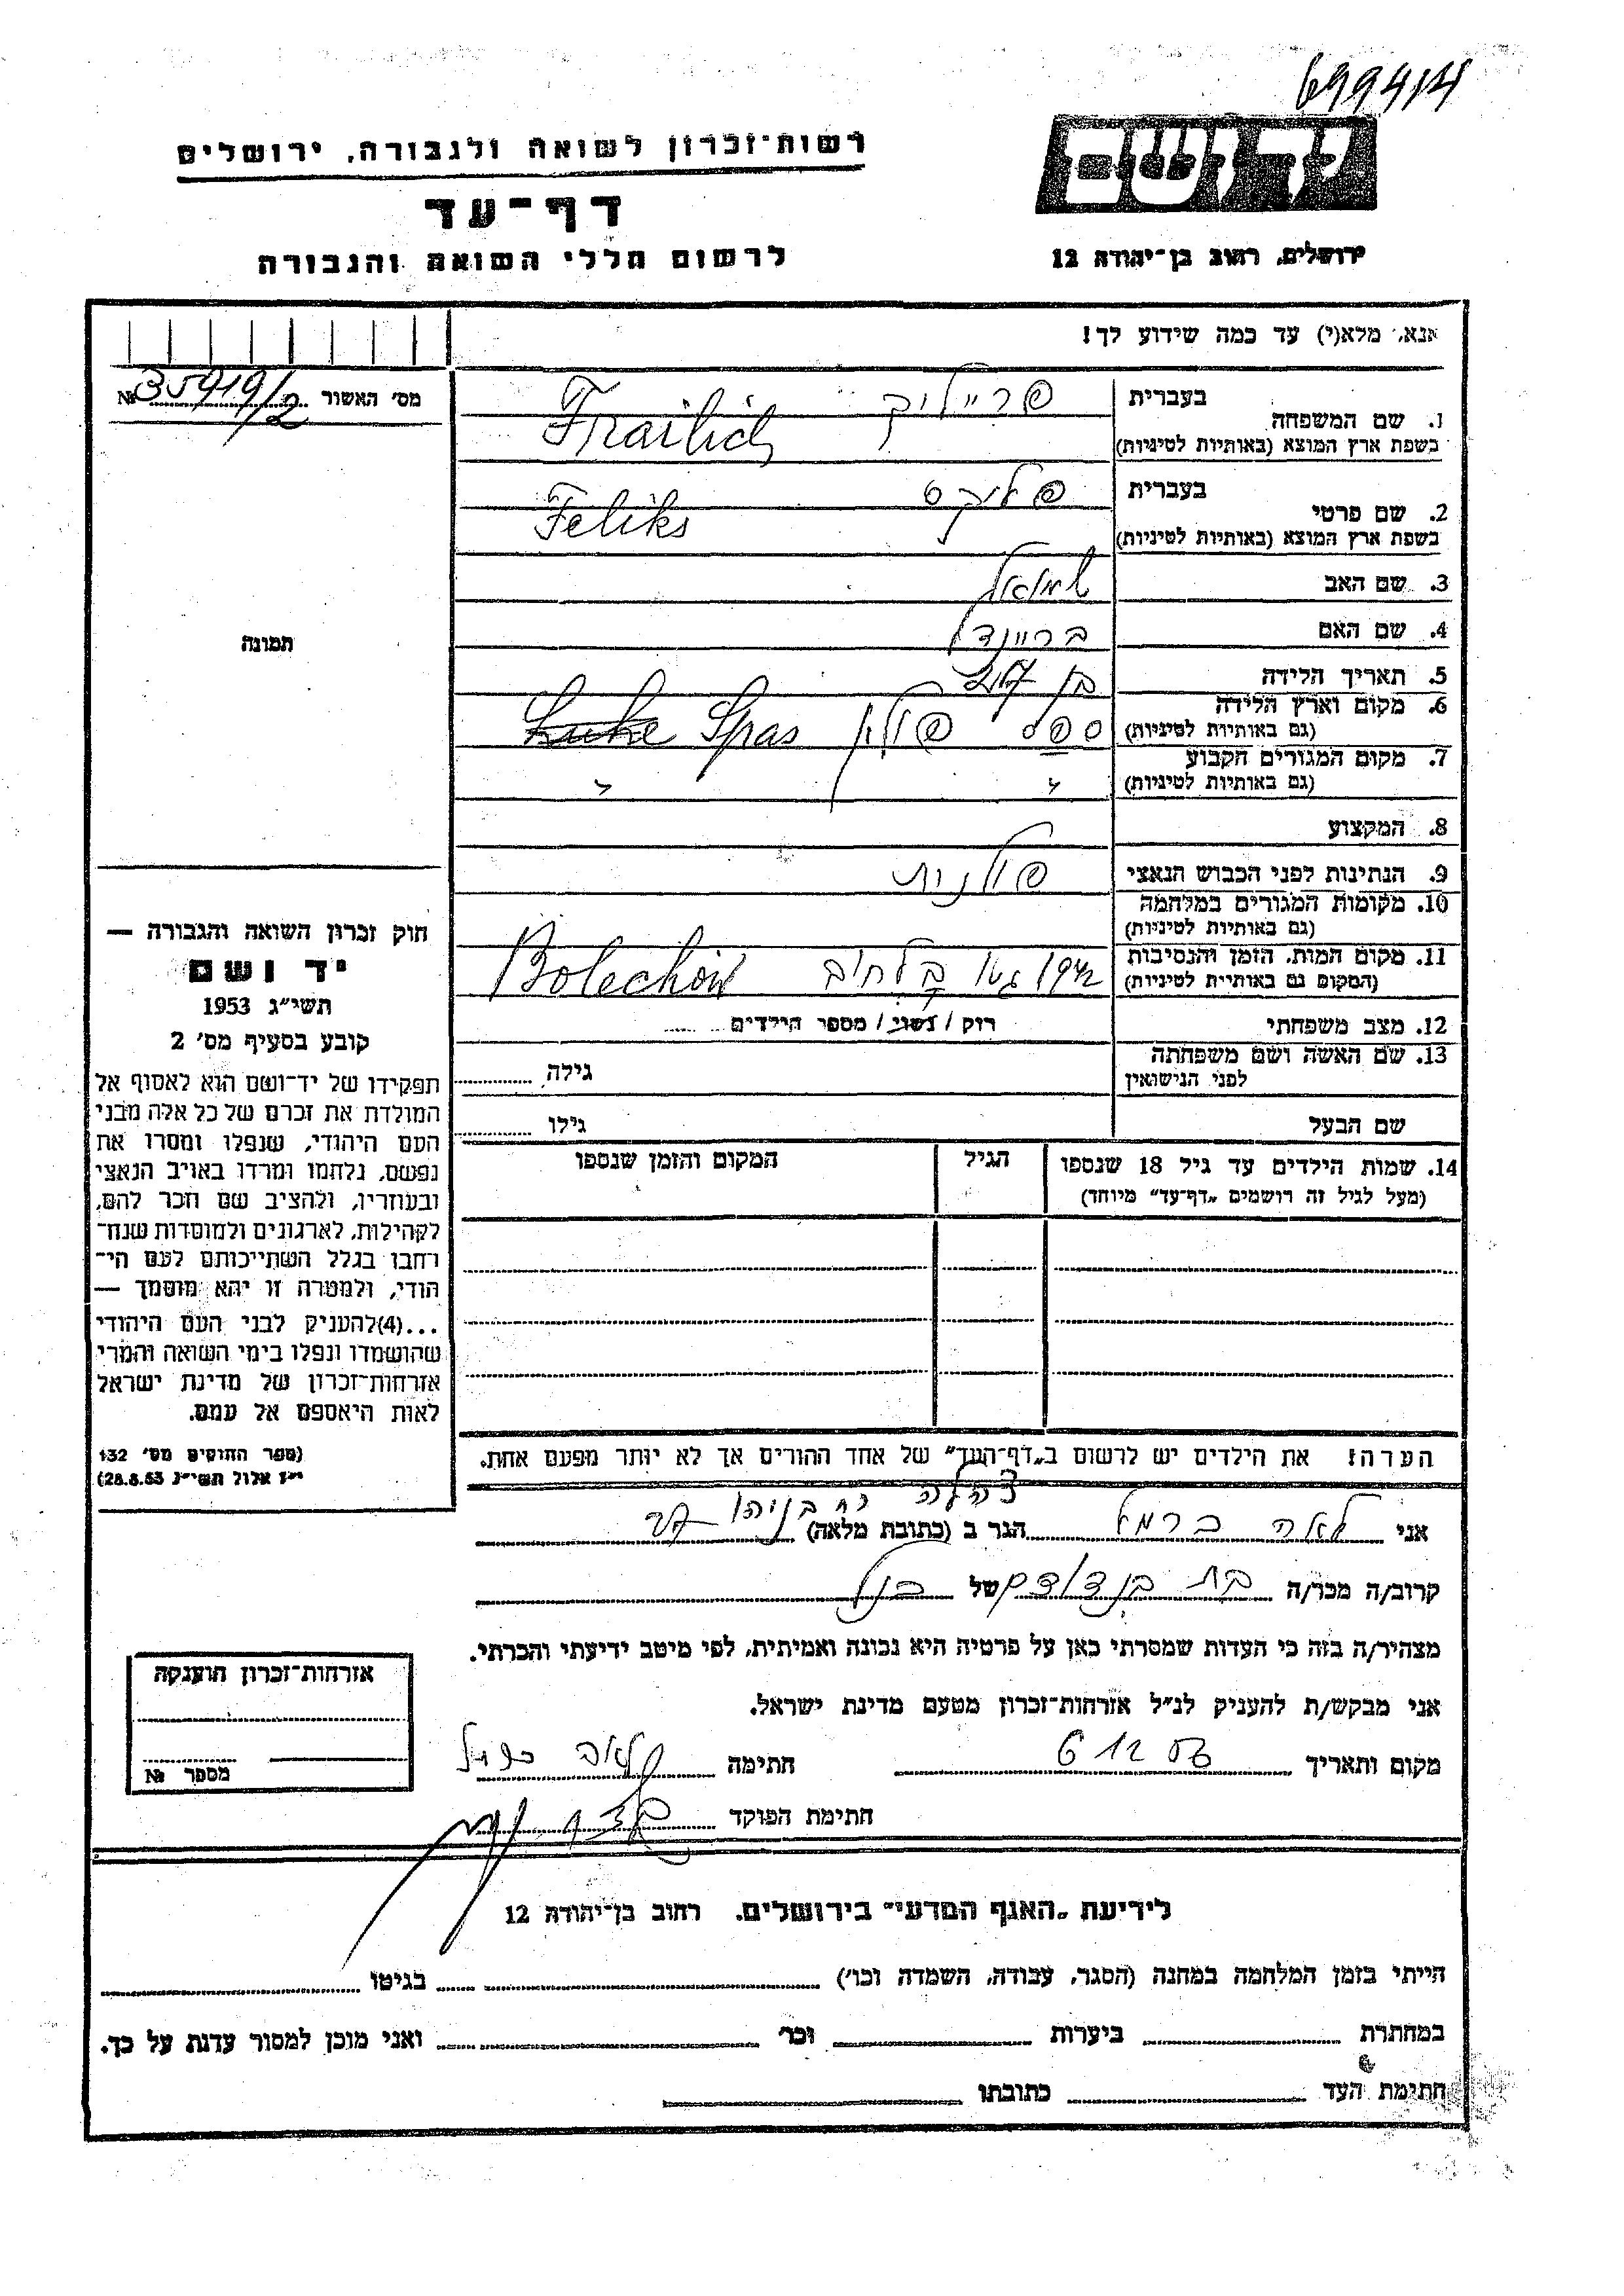 699414
רשות־זכרון לשואה ולגבורה, ירושלים
דף־עד
לרשום חללי השואה והגבורה
יד ושם
ירושלים, רחוב בן־יהודה 12
אנא, מלא(י) עד כמה שידוע לך!
מס׳ האשור № 35919/2
1. שם המשפחה בעברית פרייליך
בשפת ארץ המוצא (באותיות לטיניות) Frailich
2. שם פרטי בעברית פליקס
בשפת ארץ המוצא (באותיות לטיניות) Feliks
3. שם האב שמואל
4. שם האם בריינדל
5. תאריך הלידה בן
6. מקום וארץ הלידה
(גם באותיות לטיניות) ספס פולין Spas
7. מקום המגורים הקבוע
(גם באותיות לטיניות) " "
8. המקצוע
9. הנתינות לפני הכבוש הנאצי פולנית
10. מקומות המגורים במלחמה
(גם באותיות לטיניות)
11. מקום המות, הזמן והנסיבות
(המקום גם באותיות לטיניות) 1942 גטו בלחוב Bolechów
12. מצב משפחתי רוק / נשוי / מספר הילדים
13. שם האשה ושם משפחתה
לפני הנישואין גילה
שם הבעל גילו
14. שמות הילדים עד גיל 18 שנספו הגיל המקום והזמן שנספו
(מעל לגיל זה רושמים „דף־עד" מיוחד)
תמונה
חוק זכרון השואה והגבורה —
יד ושם
תשי"ג 1953
קובע בסעיף מס׳ 2
תפקידו של יד־ושם הוא לאסוף אל
המולדת את זכרם של כל אלה מבני
העם היהודי, שנפלו ומסרו את
נפשם, נלחמו ומרדו באויב הנאצי
ובעוזריו, ולהציב שם וזכר להם,
לקהילות, לארגונים ולמוסדות שנח־
רחבו בגלל השתייכותם לעם הי־
הודי, ולמטרה זו יהא מוסמך —
...(4)להעניק לבני העם היהודי
שהושמדו ונפלו בימי השואה והמרי
אזרחות־זכרון של מדינת ישראל
לאות היאספם אל עמם.
(ספר החוקים מס׳ 132
י"ז אלול תשי"ג 28.8.53)
הערה: את הילדים יש לרשום ב„דף־העד" של אחד ההורים אך לא יותר מפעם אחת.
צהלה רח בניהו
אני לאה כרמל הגר ב (כתובת מלאה)
קרוב/ה מכר/ה בת בן דודם של הנ"ל
מצהיר/ה בזה כי העדות שמסרתי כאן על פרטיה היא נכונה ואמיתית, לפי מיטב ידיעתי והכרתי.
אני מבקש/ת להעניק לנ"ל אזרחות־זכרון מטעם מדינת ישראל.
מקום ותאריך 6 12 56 חתימה לאה כרמל
חתימת הפוקד
אזרחות־זכרון הוענקה
מספר №
לידיעת „האגף המדעי" בירושלים. רחוב בן־יהודה 12
הייתי בזמן המלחמה במחנה (הסגר, עבודה, השמדה וכו׳) בגיטו
במחתרת ביערות וכו׳ ואני מוכן למסור עדות על כך.
חתימת העד כתובתו